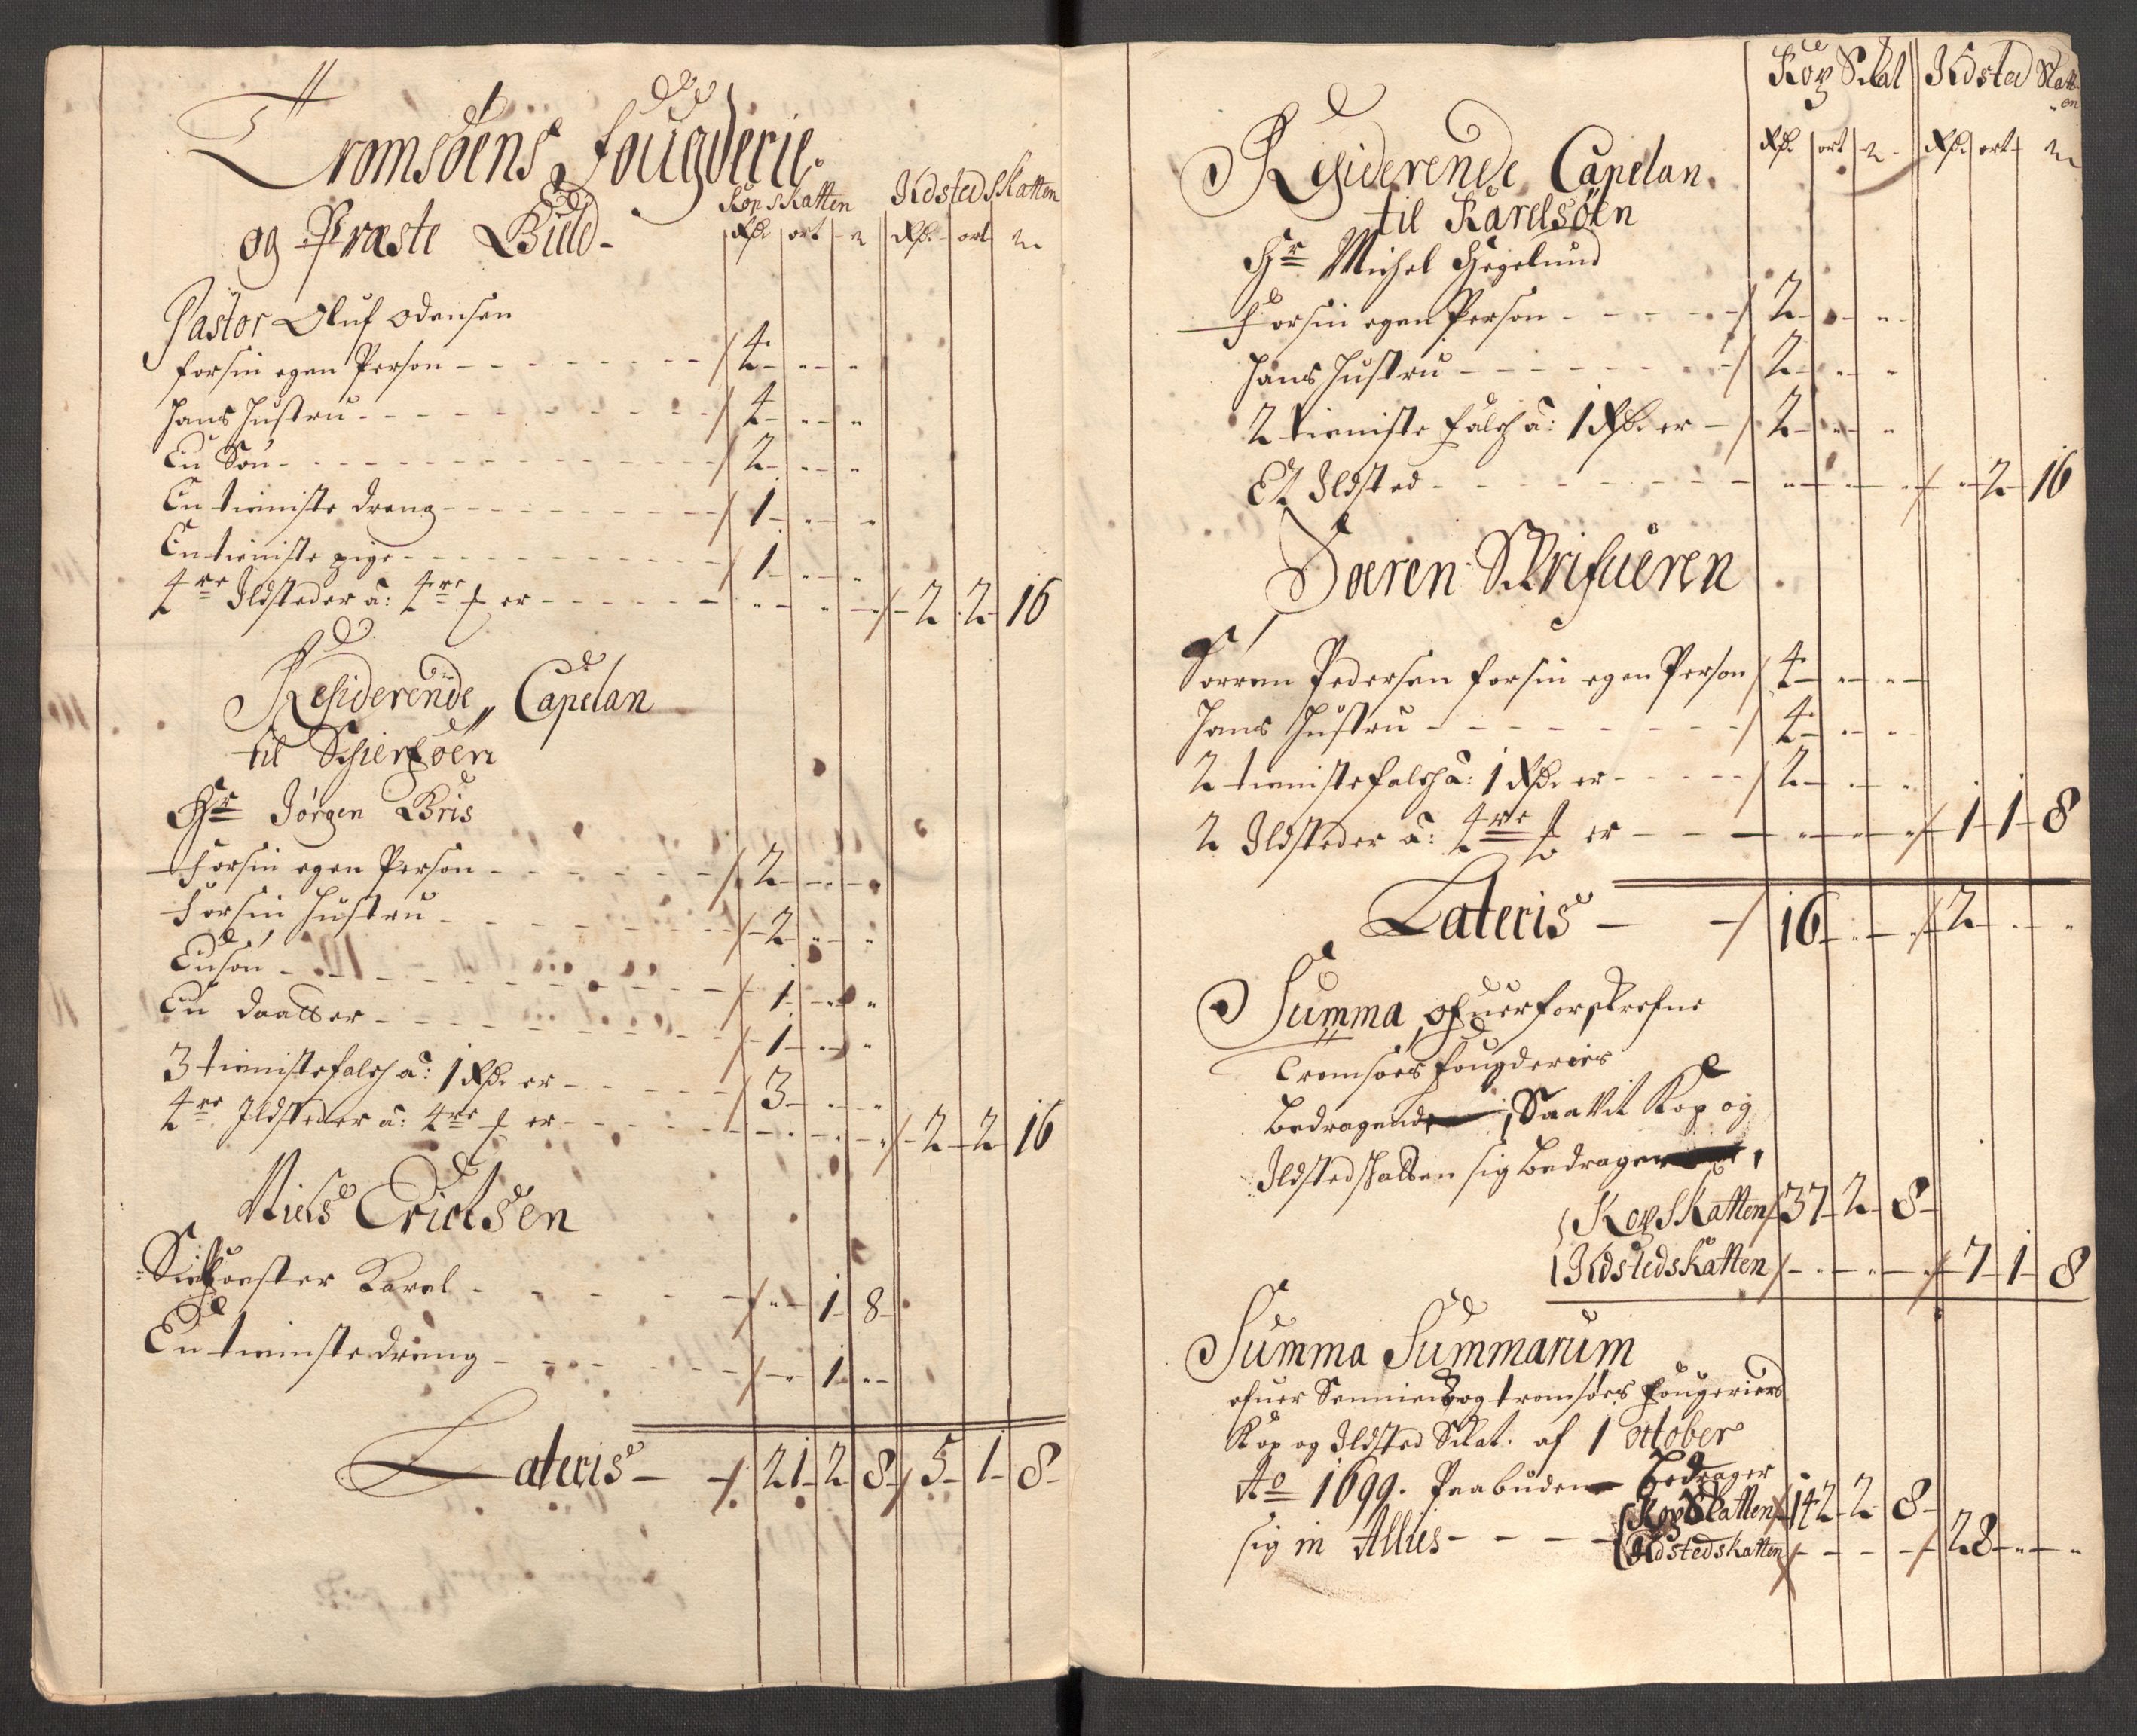 Tromsøens fougderie
og Præste Bùld-
Kopskatten Ildstedskatten
Rdr ort ß Rdr ort ß
Pastor Oluf Odensen
for sin egen Person - - - 4 - " - "
Hans Hustru - - - 4 - " - "
En Søn - - - 2 - " - "
En tieniste dreng - - - 1 - " - "
En tieniste pige - - - 1 - " - "
4re Ildsteder a: 4re ß er - - - " - " - 2 - 2 - 16
Residerende Capelan
til
Hr Jørgen Bris
For sin egen Person - - - 2 - " - "
For sin Hustru - - - 2 - " - "
En søn - - - 1 - " - "
En daatter - - - 1 - " - "
3 tieniste folch a: 1 Rdr er - - - 3 - " - "
4re Ildsteder a: 4re ß er - - - " - " - 2 - 2 - 16
Niels Erichsen
Karel - - - " - 1 - 8
En tieniste dreng - - - " - 1 - "
Lateris - 21 - 2 - 8 - 5 - 1 - 8
Kop Skat Ildsted Skatten
Rdr ort ß Rdr ort ß
Residerende Capelan
til Karelsøen
Hr Michel Hegelund
For sin egen Person - - - 2 - " - "
Hans Hustru - - - 2 - " - "
2 tieniste folch a: 1 Rdr er - 2 - " - "
Et Ildsted - - - " - " - " - 2 - 16
Soeren Skrifueren
Sørren Pedersen for sin egen Person 4 - " - "
Hans Hustru - - - 4 - " - "
2 tieniste folch a: 1 Rdr er - - - 2 - " - "
2 Ildsteder a: 4re ß er - - - " - " - 1 - 1 - 8
Lateris - 16 - " - " - 2 - " - "
Summa ofuerforskrefne
Tromsøes fougderies
Bedragende, Saa vit Kop og
Ildstedskatten sig bedrager
Kopskatten 37 - 2 - 8
Ildstedskatten - " - " - " - 7 - 1 - 8
Summa Summarum
ofuer Senniens og tromsøes fougeriers
Kop og Ildsted Skat. af 1 october
Ao 1699. Paabuden Bedrager
sig in Allis - - - Kopskatten 142 - 2 - 8
Ildstedskatten - - - 28 - " - "